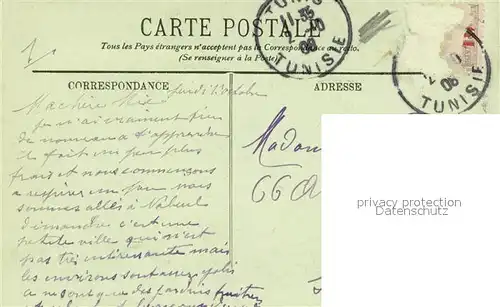 CARTE POSTALE
Tous les Pays étrangers n'acceptent pas la Correspondance au recto.
(Se renseigner à la Poste)
TUNIS
TUNISIE
06
TUNISIE
CORRESPONDANCE
ADRESSE
Ma chère
je n'ai vraiment rien
de nouveau à t'apprendre
il fait un peu plus
frais et nous commençons
a respirer un peu nous
sommes allés à Nabeul
dimanche c'est une
petite ville qui n'est
pas très intéressante mais
les environs sont assez jolis
des jardins fruitiers
Madam
66
privacy protection
Datenschutz